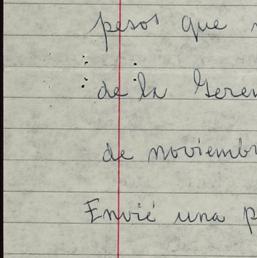 pesos que
de la Geren
de noviembr
Envié una p